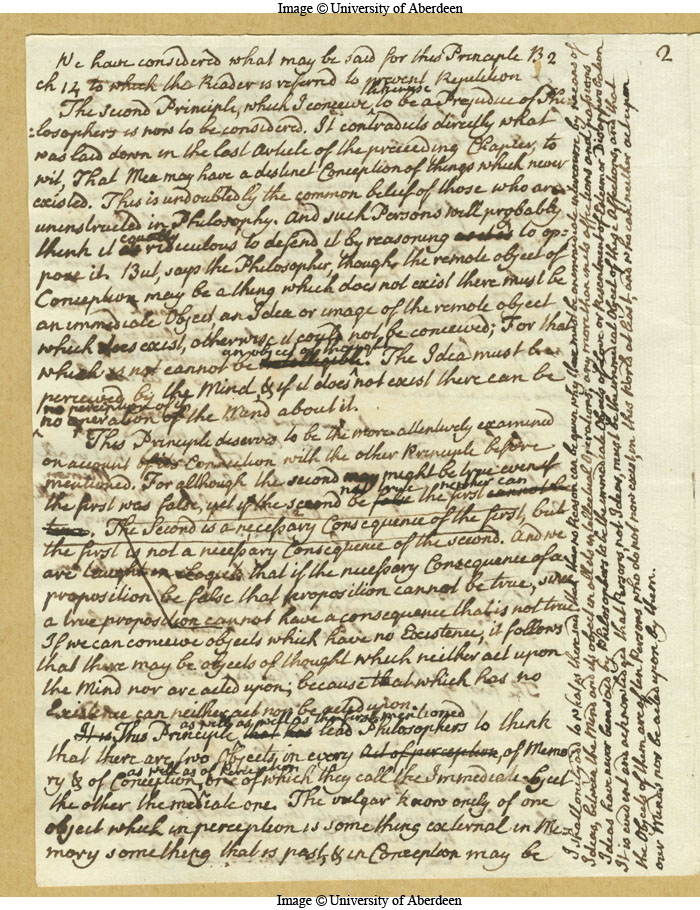 Image © University of Aberdeen
2
We have considered what may be said for this Principle B 2
ch 14 to which the Reader is referred to prevent Repetition
The second Principle, which I conceive likewise to be a Prejudice of Phi
losophers is now to be considered. It contradicts directly what
was laid down in the last Article of the preceeding Chapter, to
wit, That Men may have a distinct Conception of things which never
existed. This is undoubtedly the common belief of those who are
uninstructed in Philosophy. And such Persons will probably
think it equally ridiculous to defend it by reasoning to op
pose it. But, says the Philosopher, though the remote object of
Conception may be a thing which does not exist there must be
an immediate Object an Idea or image of the remote object
which does exist, otherwise it could not be conceived; For that
which is not cannot be an object of thought. The Idea must be
perceived by the Mind & if it does not exist there can be
no perception of it
no operation of the Mind about it.
This Principle deserves to be the more attentively examined
on account of its Connection with the other Principle before
mentioned. For although the second may might be true even if
the first was false, yet if the second be not true neither can the first
. The Second is a necessary Consequence of the first, but
the first is not a necessary Consequence of the second. And we
are taught in Logick that if the necessary Consequence of a
proposition be false that proposition cannot be true, since
a true proposition cannot have a consequence that is not true
If we can conceive objects which have no Existence, it follows
that there may be objects of thought which neither act upon
the Mind nor are acted upon; because that which has no
Existence can neither act nor be acted upon.
It is This Principle as well as the first mentioned that has lead Philosophers to think
that there are two Objects in every act of perception, of Memo
ry & of Conception as well as of Perception one of which they call the Immediate Object
the other the mediate one. The vulgar know only of one
object which in perception is something external in Me
mory something that is past, & in Conception may be
I shall only add to what is there said that no reason can be given why there must be an immediate intercourse by means of
Ideas, between the Mind and its object in all its intellectual Operations, any more than in its affections and passions
Ideas have never been said by Philosophers to be the immediate Objects of Love or Resentment of Esteem or Disapprobation
It is evident and acknowledged that Persons, not Ideas, must be the immediate Object of these Affections, and that
the Objects of them are often Persons who do not now exist, in this World at least, and who can neither act upon
our Minds nor be acted upon by them.
Image © University of Aberdeen